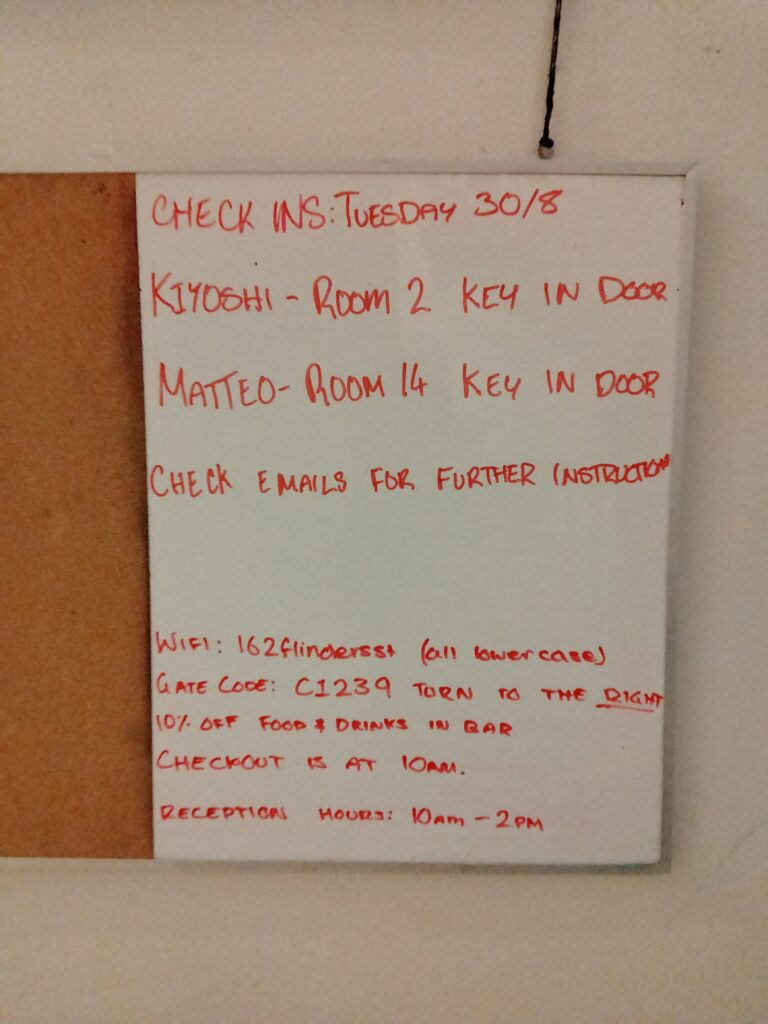 CHECK INS: TUESDAY 30/8
KIYOSHI - ROOM 2 KEY IN DOOR
MATTEO - ROOM 14 KEY IN DOOR
CHECK EMAILS FOR FURTHER INSTRUCTION
WIFI: 162flindersst (all lowercase)
GATE CODE: C1239 TURN TO THE RIGHT
10% OFF FOOD & DRINKS IN BAR
CHECKOUT IS AT 10AM.
RECEPTION HOURS: 10am - 2PM